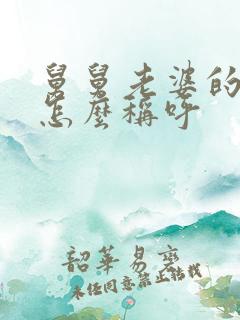 舅舅老婆的
怎麼稱呼
韶華易變
未经同意禁止转载